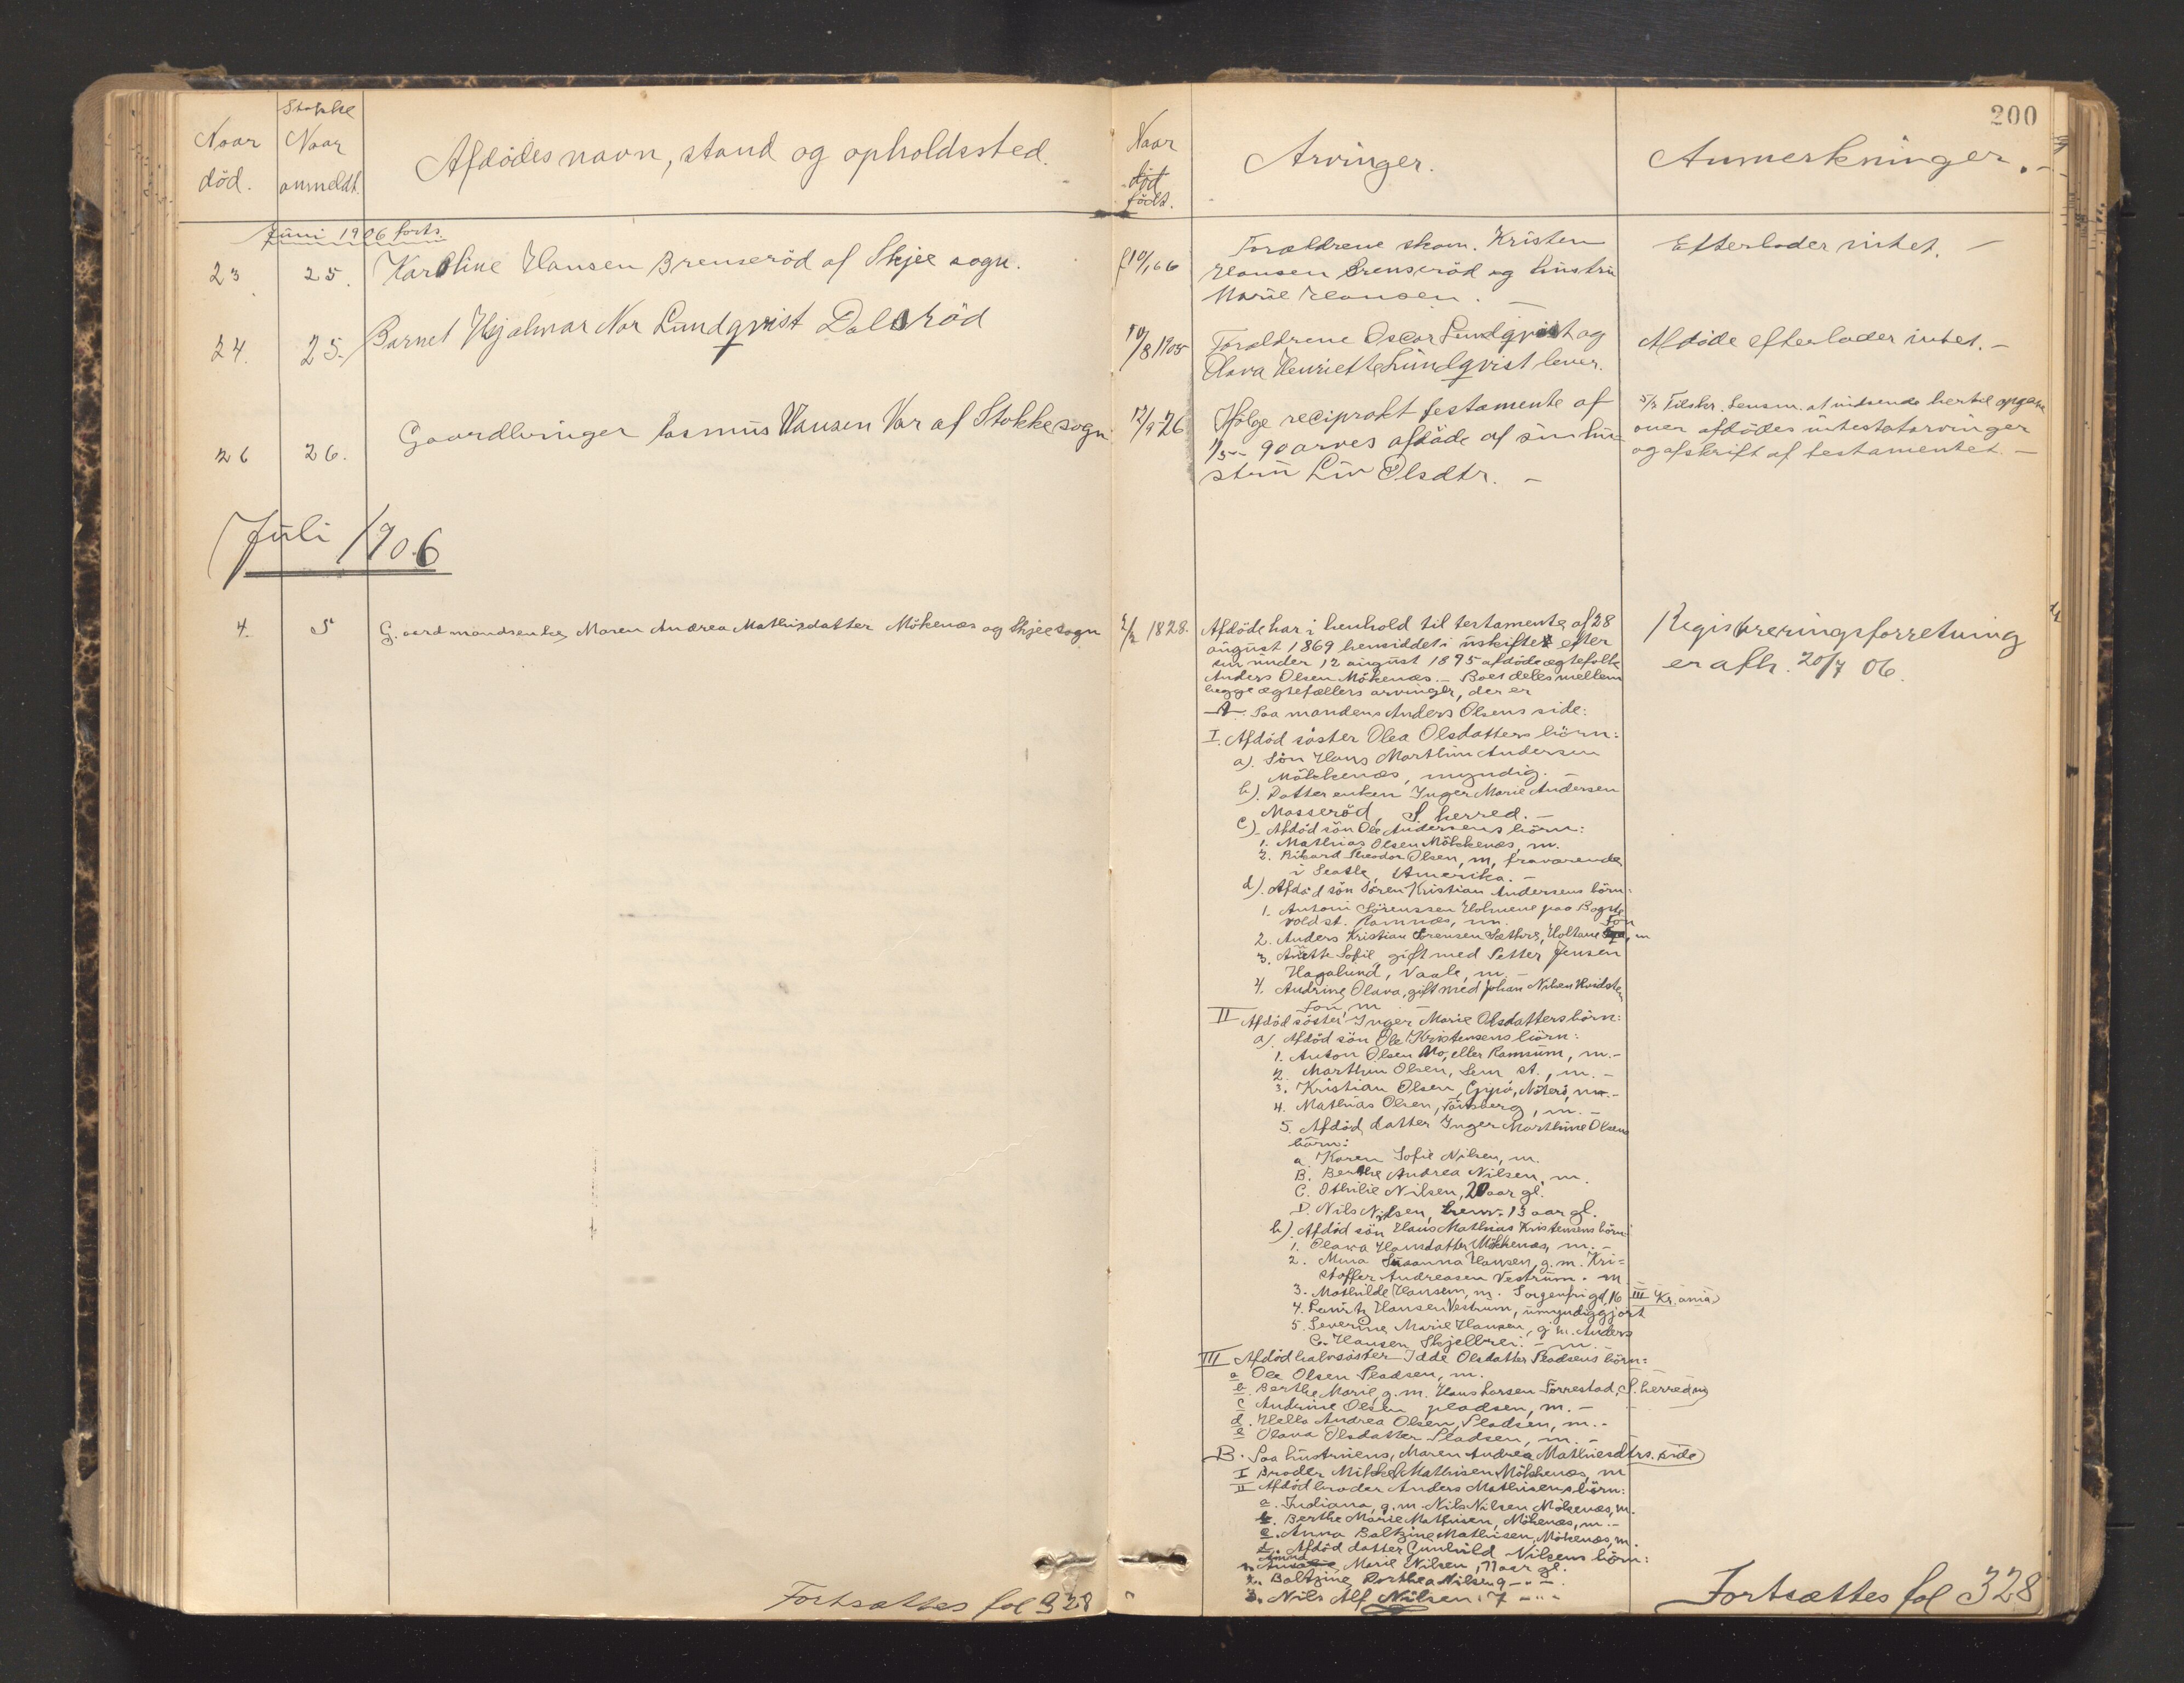 200
Stokke
Naar død.
Naar anmeldt.
Afdødes navn, stand og opholdssted.
Naar
død
født.
Arvinger.
Anmerkninger.
Juni 1906 forts.
23 25. Karoline Hansen Brenserød af Skjee sogn.
10/1 66
Forældrene skom. Kristen
Hansen Brenserød og hustru
Marie Hansen. —
Efterlader intet. —
24. 25. Barnet Hjalmar Nor Lundqvist Dalsrød
10/8 1905
Forældrene Oscar Lundqvist og
Olava Henriette Lundqvist lever.
Afdøde efterlader intet. —
26 26. Gaardbruger Rasmus Hansen Var af Stokke sogn
12/9 26
Ifølge reciprokt testamente af
1/5 - 90 arves afdøde af sin hu-
stru Liv Olsdtr. —
5/7 Tilskr. Lensm. at indsende hertil opgave
over afdødes intestatarvinger
og afskrift af testamentet. —
Juli 1906
4. 5 Gaardmandsenke Maren Andrea Mathisdatter Mökenæs og Skjee sogn
2/2 1828.
Afdøde har i henhold til testamente af 28
august 1869 hensiddet i uskiftet efter
sin under 12 august 1895 afdøde ægtefolk
Anders Olsen Mökenæs. - Boet deles mellem
begge ægtefællers arvinger, der er
Registreringsforretning
er afh. 20/7 06.
A. Paa mandens Anders Olsens side:
I. Afdød søster Olea Olsdatters børn:
a). Søn Hans Marthin Andersen
Mölekenæs, myndig. —
b). Datter enken Inger Marie Andersen
Masserød, S. herred. —
c). Afdød søn Ole Andersens børn:
1. Mathias Olsen Mölekenæs, m.
2. Rikard Theodor Olsen, m, fraværende
i Seatle, Amerika. —
d). Afdød søn Søren Kristian Andersens børn:
1. Antoni Sörenssen Holmene paa
vold st. Ramnæs, m.
Fon
2. Anders Kristian Sørensen Sæthre, Holtane, m
3. Anette Sofie gift med Petter Jensen
Hagalund, Vaale, m. —
4. Andrine Olava, gift med Johan Nilsen Hvidsten
Fon, m
II Afdød søster Inger Marie Olsdatters børn:
a). Afdød søn Ole Kristensens børn:
1. Anton Olsen Mo, eller Ramsum, m. -
2. Marthin Olsen, Sem st., m. —
3. Kristian Olsen, Nöterö, m. -
4. Mathias Olsen, Tönsberg, m. —
5. Afdød datter Inger Marthine Olsens
børn:
a. Karen Sofie Nilsen, m.
B. Berthe Andrea Nilsen, m.
C. Othilie Nilsen, 20 aar gl.
D. Nils Nilsen, henv. 13 aar gl.
b). Afdød søn Hans Mathias Kristensens børn
1. Olava Hansdatter Mölkenæs, m. -
2. Mina Susanna Hansen, g. m. Kri-
stoffer Andreasen Vestrum. m
3. Mathilde Hansen, m. Sorgenfri gd. 16 III Kr.ania)
4. Hansen Vestrum, umyndiggjort
5. Severine Marie Hansen, g. m. Anders
C. Hansen Skjellbrei. - m. -
III Afdød halvsøster Idde Olsdatter Pladsens børn:
a Ole Olsen Pladsen, m.
b. Berthe Marie, g. m. Hans Larsen Torrestad, S. herred m)
c Andrine Olsen pladsen, m. -
d. Hella Andrea Olsen, Pladsen, m. -
e Olava Olsdatter Pladsen, m. -
B. Paa hustruens, Maren Andrea Mathiesdtrs. side)
I Broder Mikkel Mathisen Mölekenæs, m
II Afdød broder Anders Mathisens børn:
a. Indiana, g. m. Nils Nilsen Mökenæs, m.
b. Berthe Marie Mathisen, Mökenæs, m. -
c. Anna Baltzine Mathisen, Mökenæs, m.
d. Afdød datter Gunhild Nilsens børn:
1. Marie Nilsen, 11 aar gl.
2. Baltzine Dorthea Nilsen 9 - " -
3. Nils Alf Nilsen 7 - " -
Fortsættes fol 328
Fortsættes fol 328